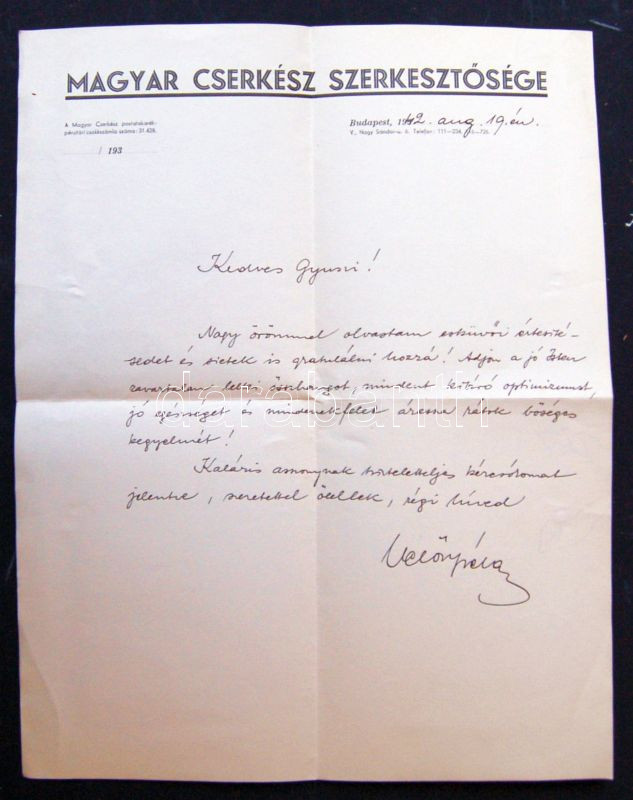 MAGYAR CSERKÉSZ SZERKESZTŐSÉGE
A Magyar Cserkész postatakarék-
pénztári csekkszámla száma: 31.428.
/ 193
Budapest, 1942. aug. 19.én.
V., Nagy Sándor-u. 6. Telefon: 111—234,
Kedves Gyuszi!
Nagy örömmel olvastam esküvői értesíté-
sedet és sietek is gratulálni hozzá! Adjon a jó Isten
zavartalan lelki összhangot, mindent kibíró optimizmust,
jó egészséget és mindenekfelett árassza rátok bőséges
kegyelmét!
asszonynak tiszteletteljes kézcsókomat
jelentve, szeretettel ölellek, régi híved
darabanth